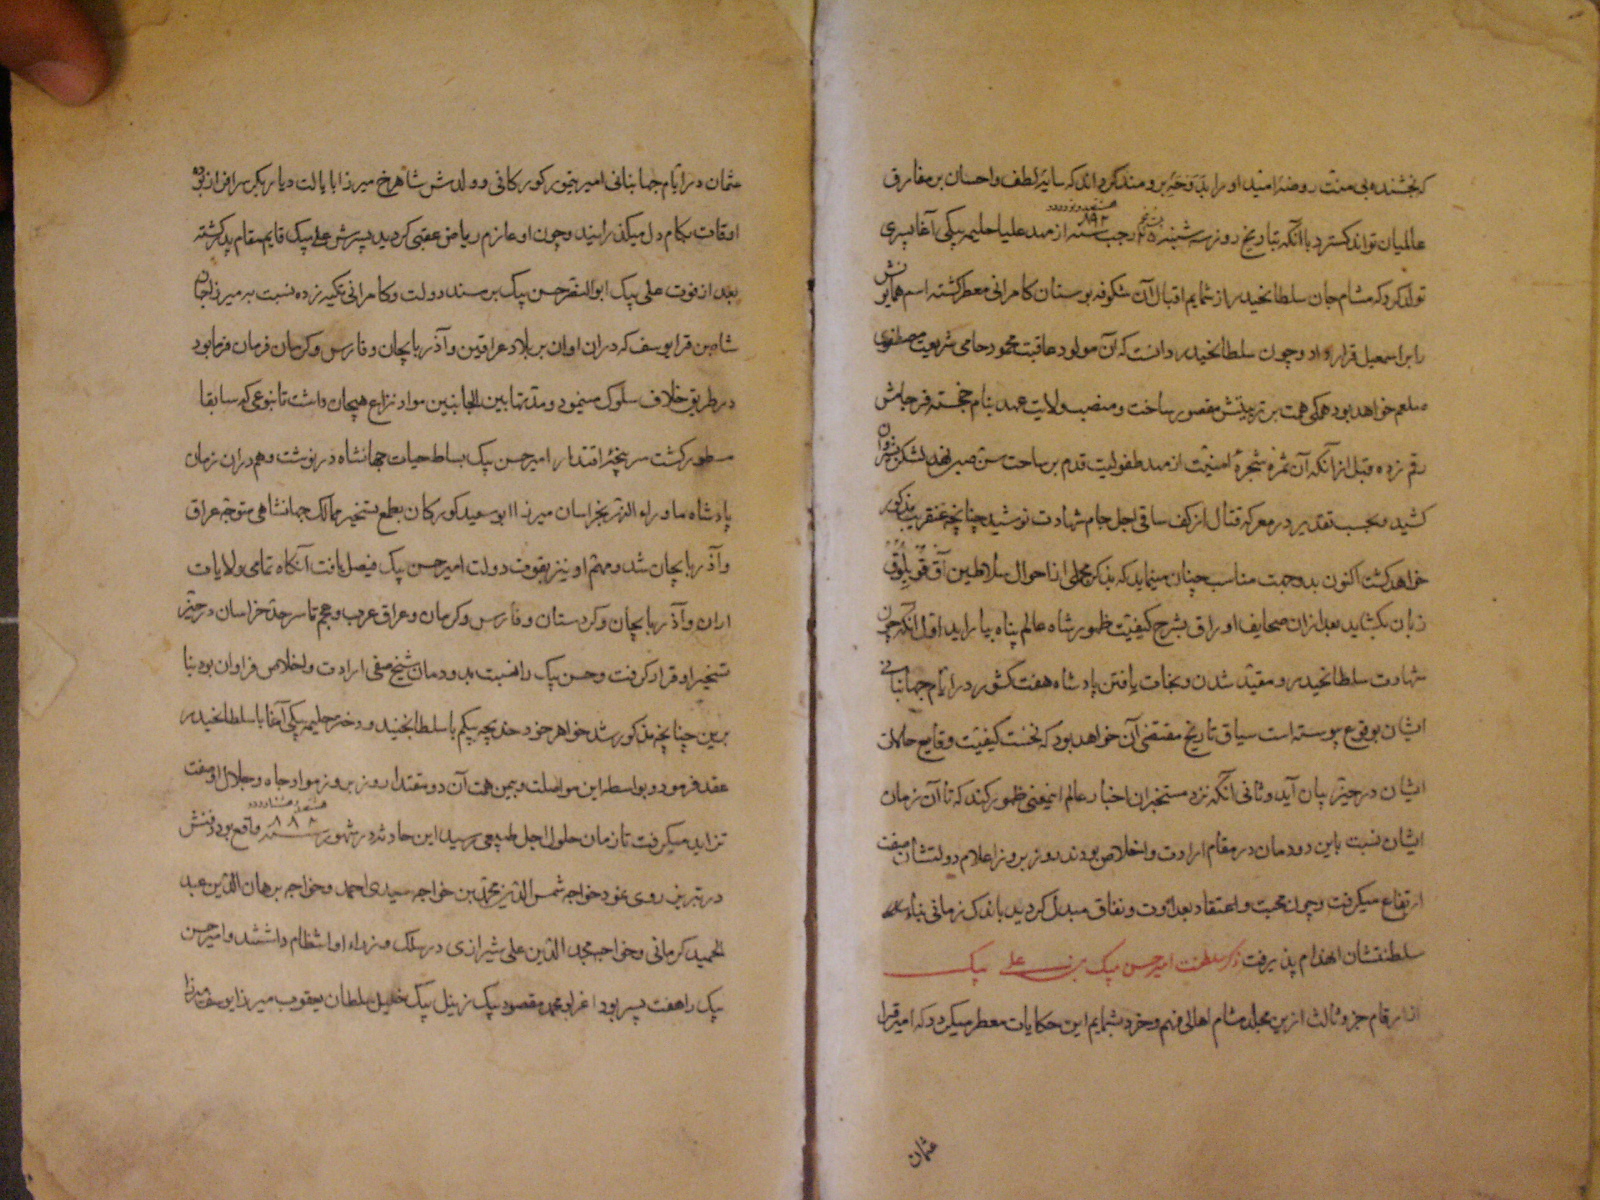 که بخشنده بی منت روضهٔ امید او را بدوحهٔ برومند گرداند که سایهٔ لطف و احسان بر مفارق
عالمیان تواند گسترد با آنکه بتاریخ روز سه شنبه رجب سنه ۸۹۲ از مهد علیا حلیمه بیکی آغا پسری
تولد کرد که مشام جان سلطانحیدر از شمایم اقبال آن شکوفه بوستان کامرانی معطر کشته اسم همایونش
را بر اسمعیل قرار داد و چون سلطانحیدر دانست که آن مولود عاقبت محمود حامی شریعت مصطفوی
صلعم خواهد بود همکی همت بر تربیتش مقصور ساخت و منصب ولایت عهد بنام خجسته فرجامش
رقم زده و قبل از آنکه آن ثمرهٔ شجرهٔ امنیت از مهد طفولیت قدم بر ساحت سن صبی نهد لشکر بشروان
کشید و بحسب تقدیر در معرکه قتال از کف ساقی اجل جام شهادت نوشید چنانچه عنقریب مذکور
خواهد کشت اکنون بدو جهت مناسب چنان مینماید که بذکر مجملی از احوال سلاطین آق قویلوق
زبان بکشاید بعد از آن صحایف اوراق بشرح کیفیت ظهور شاه عالم پناه بیاراید اول آنکه چون
شهادت سلطانحیدر و مقید شدن و نجات یافتن پادشاه هفت کشور در ایام جهانبانی
ایشان بوقوع پیوسته است سیاق تاریخ مقتضی آن خواهد بود که نخست کیفیت وقایع حالات
ایشان در حیز بیان آید و ثانی آنکه نزد مستخبران اخبار عالم اینمعنی ظهور کند که تا آن زمان
ایشان نسبت باین دودمان در مقام ارادت و اخلاص بودند روز بروز اعلام دولتشان صفت
ارتفاع میگرفت و چون محبت و اعتقاد بعداوت و نفاق مبدل کردید باندک زمانی بناء
سلطنتشان انهدام پذیرفت ذکر سلطنت امیر حسن بیک بن علی بیک
از ارقام جزو ثالث ازین مجلد مشام اهالی فهم و خرد بشمایم این حکایات معطر میکردد که امیر قرا
عثمان
عثمان در ایام جهانبانی امیر تیمور کورکانی و ولدش شاهرخ میرزا بایالت دیار بکر سرافراز بوده
اوقات بکام دل میگذرانید و چون او عازم ریاض عقبی کردید پسرش علی بیک قایم مقام پدر کشته
بعد از فوت علی بیک ابو النصر حسن بیک بر مسند دولت و کامرانی تکیه زده نسبت به میرزا جهان
شاه بن قرا یوسف که در ان اوان بر بلاد عراقین و آذربایجان و فارس و کرمان فرمان فرما بود
در طریق خلاف سلوک مینمود و مدتها بین الجانبین مواد نزاع هیجان داشت تا بنوعی که سابقا
مسطور کشت سرپنجهٔ اقتدار امیر حسن بیک بساط حیات جهانشاه در نوشت و هم در ان زمان
پادشاه ماوراء النهر و خراسان میرزا ابو سعید کورکان بطمع تسخیر ممالک جهانشاهی متوجه عراق
و آذربایجان شد و مهم او نیز بقوت دولت امیر حسن بیک فیصل یافت آنکاه تمامی ولایات
اران و آذربایجان و کردستان و فارس و کرمان و عراق عرب و عجم تا سرحد خراسان در حیز
تسخیر او قرار کرفت و حسن بیک را نسبت بدودمان شیخ صفی ارادت و اخلاص فراوان بود بنا
برین چنانچه مذکور شد خواهر خود خدیجه بیکم با سلطانجنید و دختر حلیمه بیکی آغا با سلطانحیدر
عقد فرمود و بواسطه این مواصلت و بیمن همت آن دو مقتدا روز بروز مواد جاه و جلال او صفت
تزاید میکرفت تا زمان حلول اجل طبیعی رسید این حادثه در شهور سنه ۸۸۲ واقع بود دفنش
در تبریز روی نمود خواجه شمس الدین محمد بن خواجه سیدی احمد و خواجه برهان الدین عبد
الحمید کرمانی و خواجه مجد الدین علی شیرازی در سلک وزراء او انتظام داشتند و امیر حسن
بیک را هفت پسر بود اغرلو محمد مقصود بیک زینل بیک خلیل سلطان یعقوب میرزا یوسف میرزا